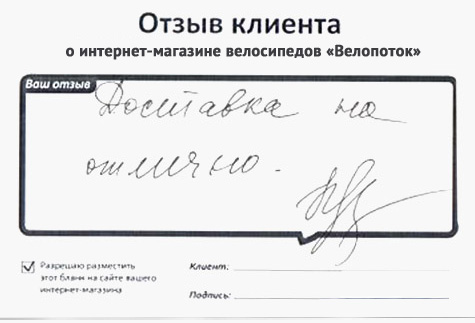 Отзыв клиента
о интернет-магазине велосипедов «Велопоток»
Ваш отзыв
Доставка на
отлично.
Разрешаю разместить
этот бланк на сайте вашего
интернет-магазина
Клиент:
Подпись: